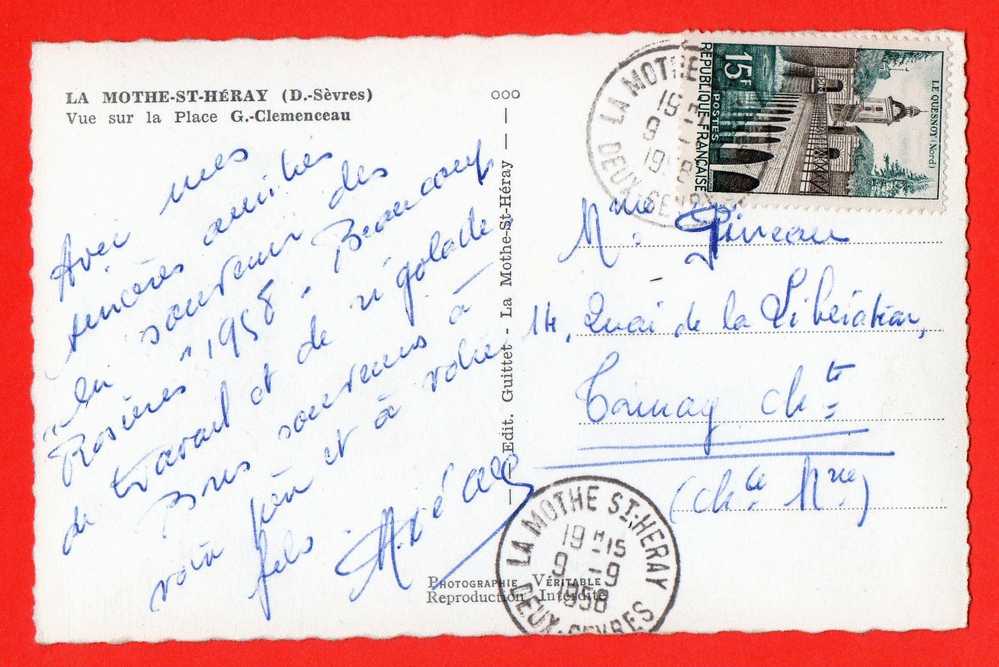 LA MOTHE-ST-HÉRAY (D.-Sèvres)
Vue sur la Place G.-Clemenceau
Avec mes
sincères amitiés
"en souvenir des
Rosières" 1958. Beaucoup
de travail et de rigolade
Bons souvenirs à
votre père et à votre
fils.
Edit. Guittet - La Mothe-St-Héray
PHOTOGRAPHIE VÉRITABLE
Reproduction Interdite
LA MOTHE
19 H
9
1958
DEUX-SEVRES
15F
POSTES
REPUBLIQUE FRANÇAISE
LE QUESNOY (Nord)
Mme Pineau
14, Quai de la Libération,
Tonnay Chte
(Chte Mme)
LA MOTHE ST-HERAY
19 H 15
9 - 9
1958
DEUX-SEVRES